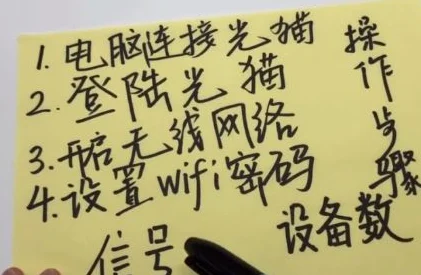 1. 电脑连接光猫
2. 登陆光猫
3. 开启无线网络
4. 设置wifi密码
操作步骤
设备数
信号